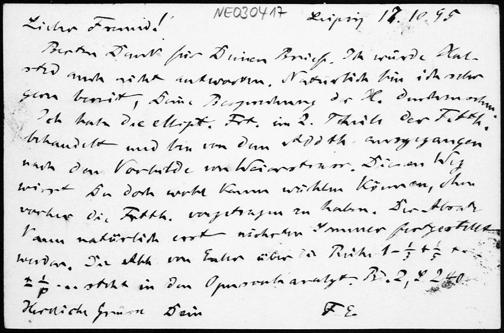 NE030417
Leipzig 17.10.95
Lieber Freund!
Besten Dank für Deinen Brief. Ich würde
und nicht antworten. Natürlich bin ich sehr
gern bereit, Deine Besprechung d. H.
Ich habe die ellipt. Fct. im 2. Theile der Fctth.
behandelt und bin von dem ausgegangen
nach dem Vorbilde von Weierstrass. Diesen Weg
wirst Du doch wohl kaum wählen können, ohne
vorher die Fctth. vorgetragen zu haben. Die
kann natürlich erst nächsten Sommer fertiggestellt
werden. Die Abh. von Euler über die Reihe 1 -
steht in den Opuscula analyt. Bd. 2, S. 240.
Herzliche Grüsse Dein F E.